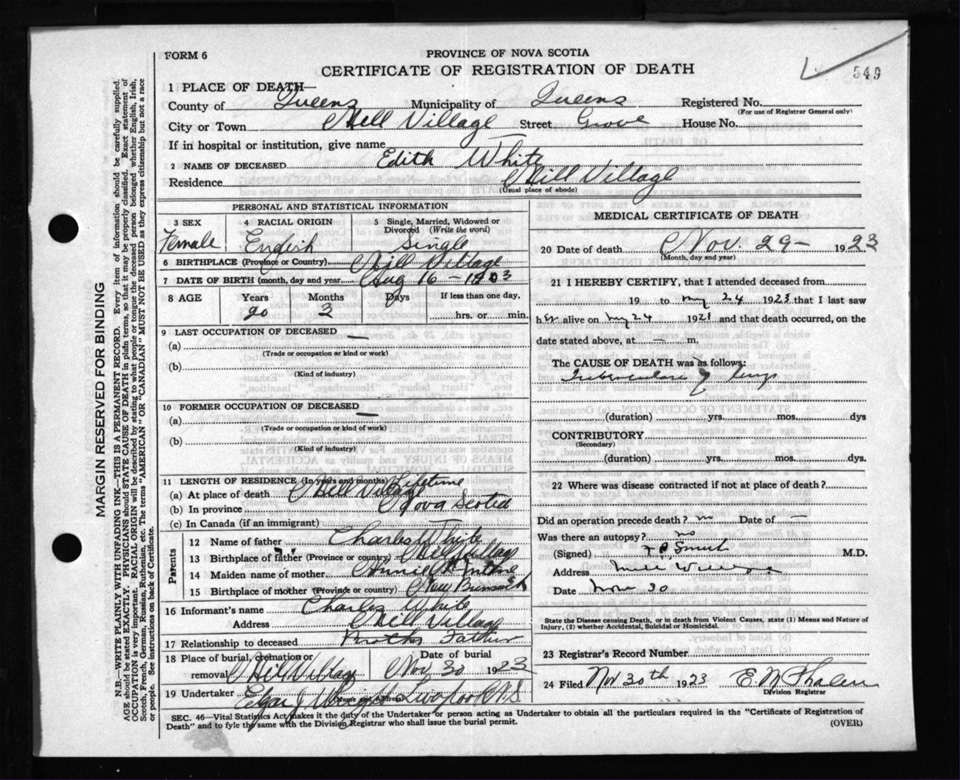 FORM 6
PROVINCE OF NOVA SCOTIA
CERTIFICATE OF REGISTRATION OF DEATH
549
1 PLACE OF DEATH—
County of Queens Municipality of Queens Registered No.
(For use of Registrar General only)
City or Town Mill Village Street Grove House No.
If in hospital or institution, give name
2 NAME OF DECEASED Edith White
Residence Mill Village
(Usual place of abode)
PERSONAL AND STATISTICAL INFORMATION
3 SEX Female
4 RACIAL ORIGIN English
5 Single, Married, Widowed or Divorced (Write the word) Single
6 BIRTHPLACE (Province or Country) Mill Village
7 DATE OF BIRTH (month, day and year) Aug 16 – 1903
8 AGE Years Months Days If less than one day,
20 3 hrs. or min.
9 LAST OCCUPATION OF DECEASED
(a) —
(Trade or occupation or kind or work)
(b)
(Kind of industry)
10 FORMER OCCUPATION OF DECEASED
(a) —
(Trade or occupation or kind of work)
(b)
(Kind of industry)
11 LENGTH OF RESIDENCE (in years and months) Lifetime
(a) At place of death Mill Village
(b) In province Nova Scotia
(c) In Canada (if an immigrant)
Parents
12 Name of father Charles White
13 Birthplace of father (Province or country) Mill Village
14 Maiden name of mother Annie
15 Birthplace of mother (Province or country) New Brunswick
16 Informant's name Charles White
Address Mill Village
17 Relationship to deceased Father
18 Place of burial, cremation or removal Mill Village
Date of burial Nov 30 1923
19 Undertaker Edgar J
MEDICAL CERTIFICATE OF DEATH
20 Date of death Nov. 29 – 1923
(Month, day and year)
21 I HEREBY CERTIFY, that I attended deceased from
19 to my 24 1923 that I last saw
h er alive on my 24 1921 and that death occurred, on the
date stated above, at — m.
The CAUSE OF DEATH was as follows:
Tuberculosis of lungs
(duration) yrs. mos. dys
CONTRIBUTORY
(Secondary)
(duration) yrs. mos. dys
22 Where was disease contracted if not at place of death?
Did an operation precede death? no Date of —
Was there an autopsy? no
(Signed) Smith M.D.
Address Mill Village
Date Nov 30
State the Disease causing Death, or in death from Violent Causes, state (1) Means and Nature of Injury, (2) whether Accidental, Suicidal or Homicidal.
23 Registrar's Record Number
24 Filed Nov 30th 1923
Division Registrar
SEC. 46—Vital Statistics Act makes it the duty of the Undertaker or person acting as Undertaker to obtain all the particulars required in the "Certificate of Registration of
Death" and to fyle the same with the Division Registrar who shall issue the burial permit.
(OVER)
MARGIN RESERVED FOR BINDING
N.B.—WRITE PLAINLY WITH UNFADING INK—THIS IS A PERMANENT RECORD. Every item of information should be carefully supplied.
AGE should be stated EXACTLY. PHYSICIANS should STATE CAUSE OF DEATH in plain terms, so that it may be properly classified. Exact statement of
OCCUPATION is very important. RACIAL ORIGIN will be described by stating to what people or tongue the deceased person belonged whether English, Irish,
Scotch, French, German, Russian, Ruthenian, etc. The terms "AMERICAN" or "CANADIAN" MUST NOT BE USED as they express citizenship but not a race
or people. See instructions on back of Certificate.